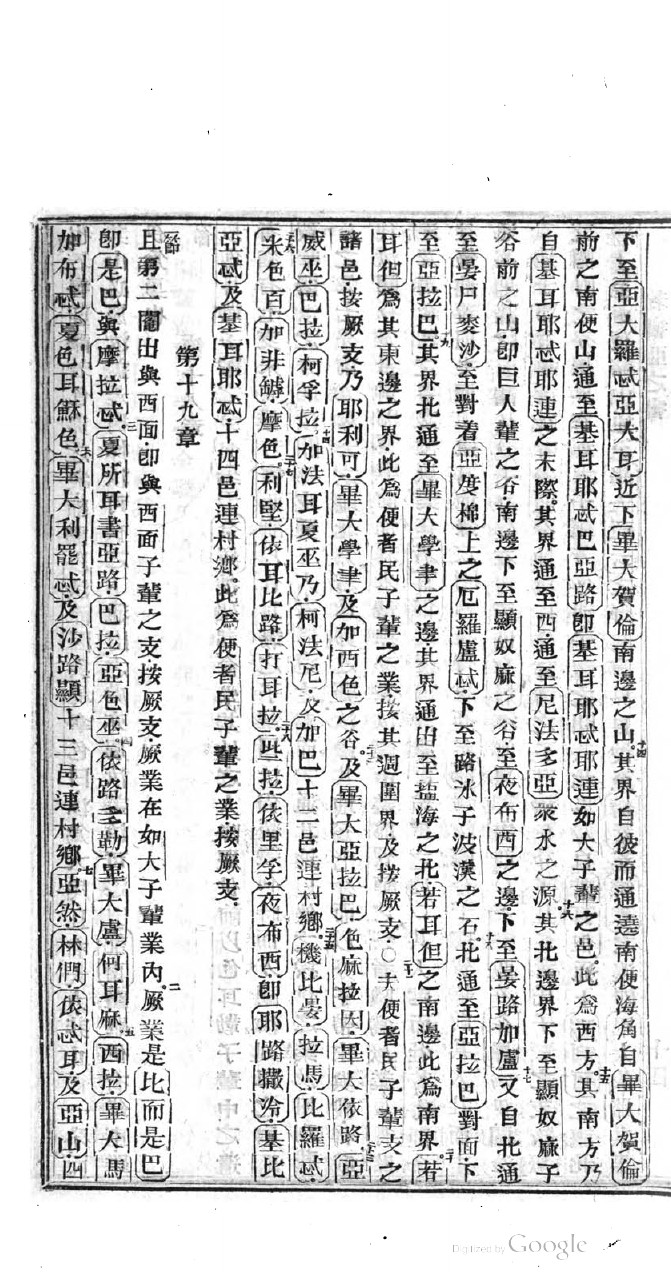 下至亞大羅忒亞大耳近下畢大賀倫南邊之山。十四其界自彼而通遶南便海角自畢大賀倫
前之南便山通至基耳耶忒巴亞路卽基耳耶忒耶連如大子輩之邑。此爲西方。十五其南方乃
自基耳耶忒耶連之末際。其界通至西通至尼法多亞衆水之源。十六其北邊界下至顯奴麻子
谷前之山卽巨人輩之谷南邊下至顯奴麻之谷至夜布西之邊下至晏路加盧。十七又自北通
至晏尸麥沙至對着亞度棉上之厄羅盧忒下至路冰子波漢之石。十八北通至亞拉巴對面下
至亞拉巴。十九其界北通至畢大學聿之邊其界通出至盐海之北若耳但之南邊此爲南界。二十若
耳但爲其東邊之界此爲便者民子輩之業按其週圍界及按厥支○二十一夫便者民子輩支之
諸邑按厥支乃耶利可畢大學聿及加西色之谷。二十二及畢大亞拉巴色麻拉因畢大依路。二十三亞
威巫巴拉柯孚拉。二十四加法耳夏巫乃柯法尼及加巴十二邑連村鄉。二十五機比晏拉馬比羅忒。
二十六米色百加非鱸摩色。二十七利堅依耳比路打耳拉。二十八些拉依里孚夜布西卽耶路撒冷基比
亞忒及基耳耶忒十四邑連村鄉。此爲便者民子輩之業按厥支。
第十九章
一節且第二鬮出與西面卽與西面子輩之支按厥支厥業在如大子輩業內。二厥業是比而是巴
卽是巴與摩拉忒。三夏所耳書亞路巴拉亞色巫。四依路多勒畢大盧何耳麻。五西拉畢大馬
加布忒夏色耳穌色。六畢大利罷忒及沙路顯十三邑連村鄉。七亞然林們依忒耳及亞山四
Digitized by Google